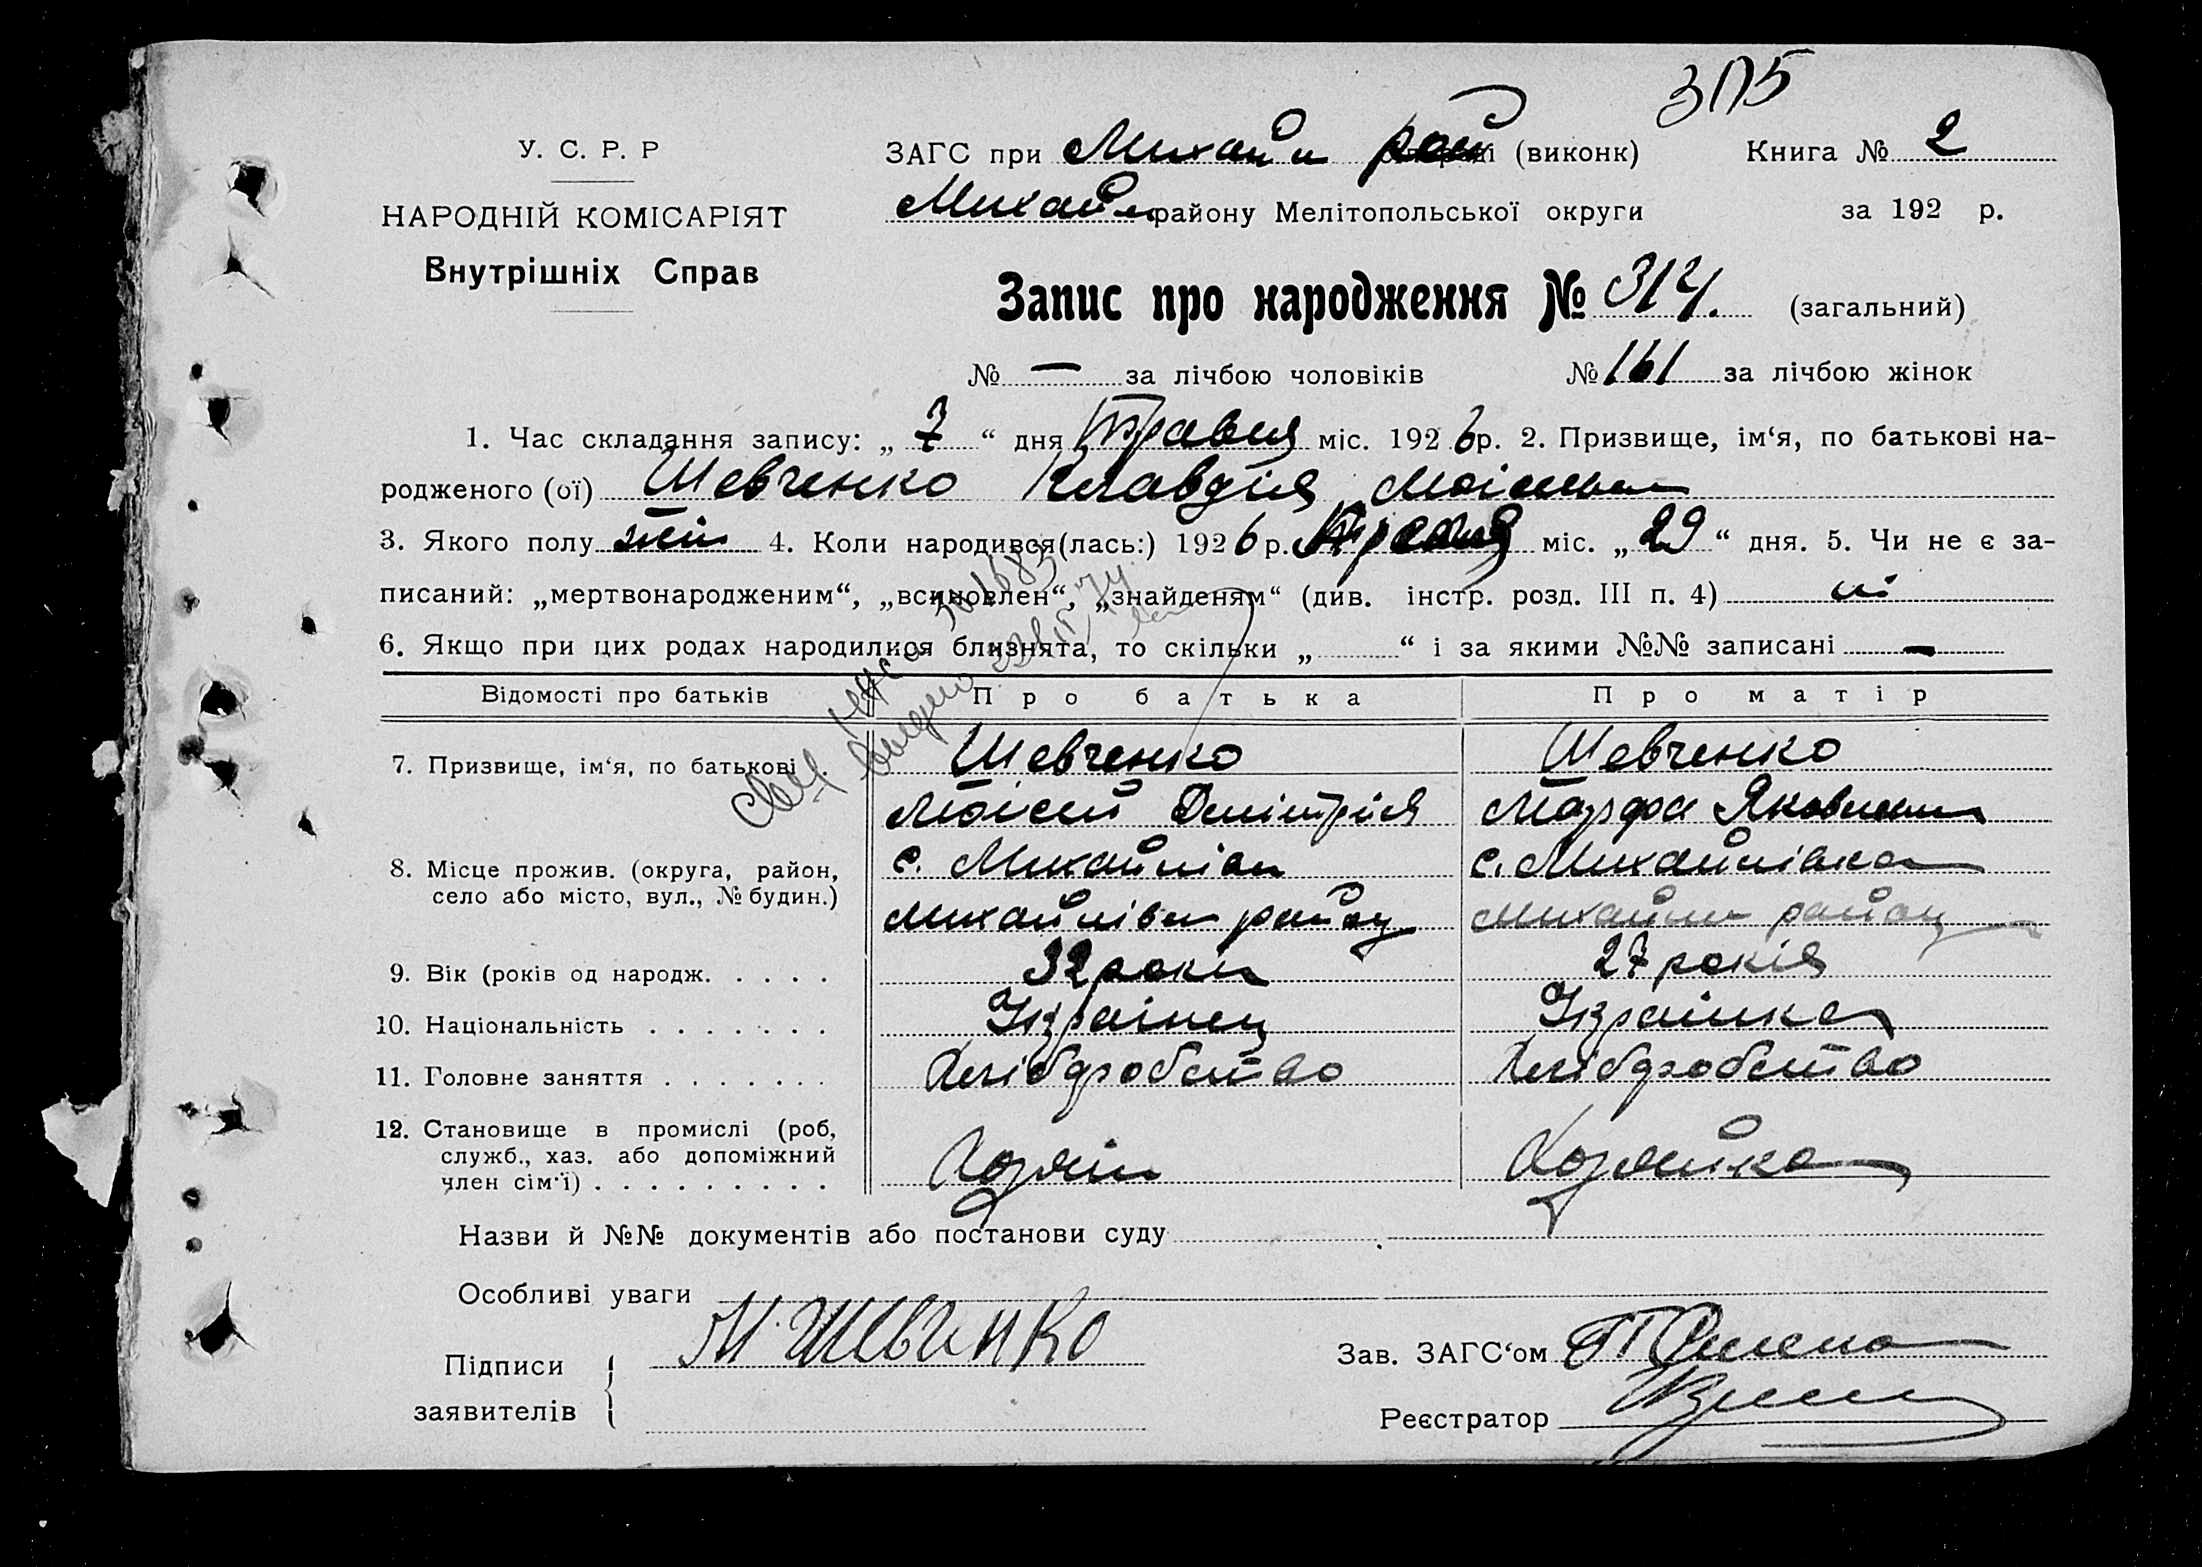 3П5
У. С. Р. Р
ЗАГС при Михайл рай (виконк) Книга № 2
НАРОДНІЙ КОМІСАРІЯТ
Михайл району Мелітопольської округи за 192 р.
Внутрішніх Справ
Запис про народження № 314. (загальний)
№ — за лічбою чоловіків № 161 за лічбою жінок
1. Час складання запису: „ 7 “ дня Травня міс. 1926 р. 2. Призвище, ім‘я, по батькові на-
родженого (ої) Шевченко Клавдія
3. Якого полу жін 4. Коли народився(лась:) 1926 р. міс. „ 29 “ дня. 5. Чи не є за-
писаний: „мертвонародженим“, „всиновлен“, „знайденям“ (див. інстр. розд. III п. 4) ні
6. Якщо при цих родах народилися близнята, то скільки „ “ і за якими №№ записані —
Відомості про батьків Про батька Про матір
7. Призвище, ім‘я, по батькові Шевченко Шевченко
Моісей Дмітрієв Марфа Яковлевн
8. Місце прожив. (округа, район, с. Михайлівк с. Михайлівка
село або місто, вул., № будин.) Михайлівк району Михайл району
9. Вік (років од народж. . . . . 32 роки 27 років
10. Національність . . . . . . . Українец Українка
11. Головне заняття . . . . . . . Хлібробство Хлібробство
12. Становище в промислі (роб,
служб., хаз. або допоміжний Хозяін Хозяйка
член сім‘ї) . . . . . . . . .
Назви й №№ документів або постанови суду
Особливі уваги
Підписи М Шевченко Зав. ЗАГС‘ом
заявителів Реєстратор